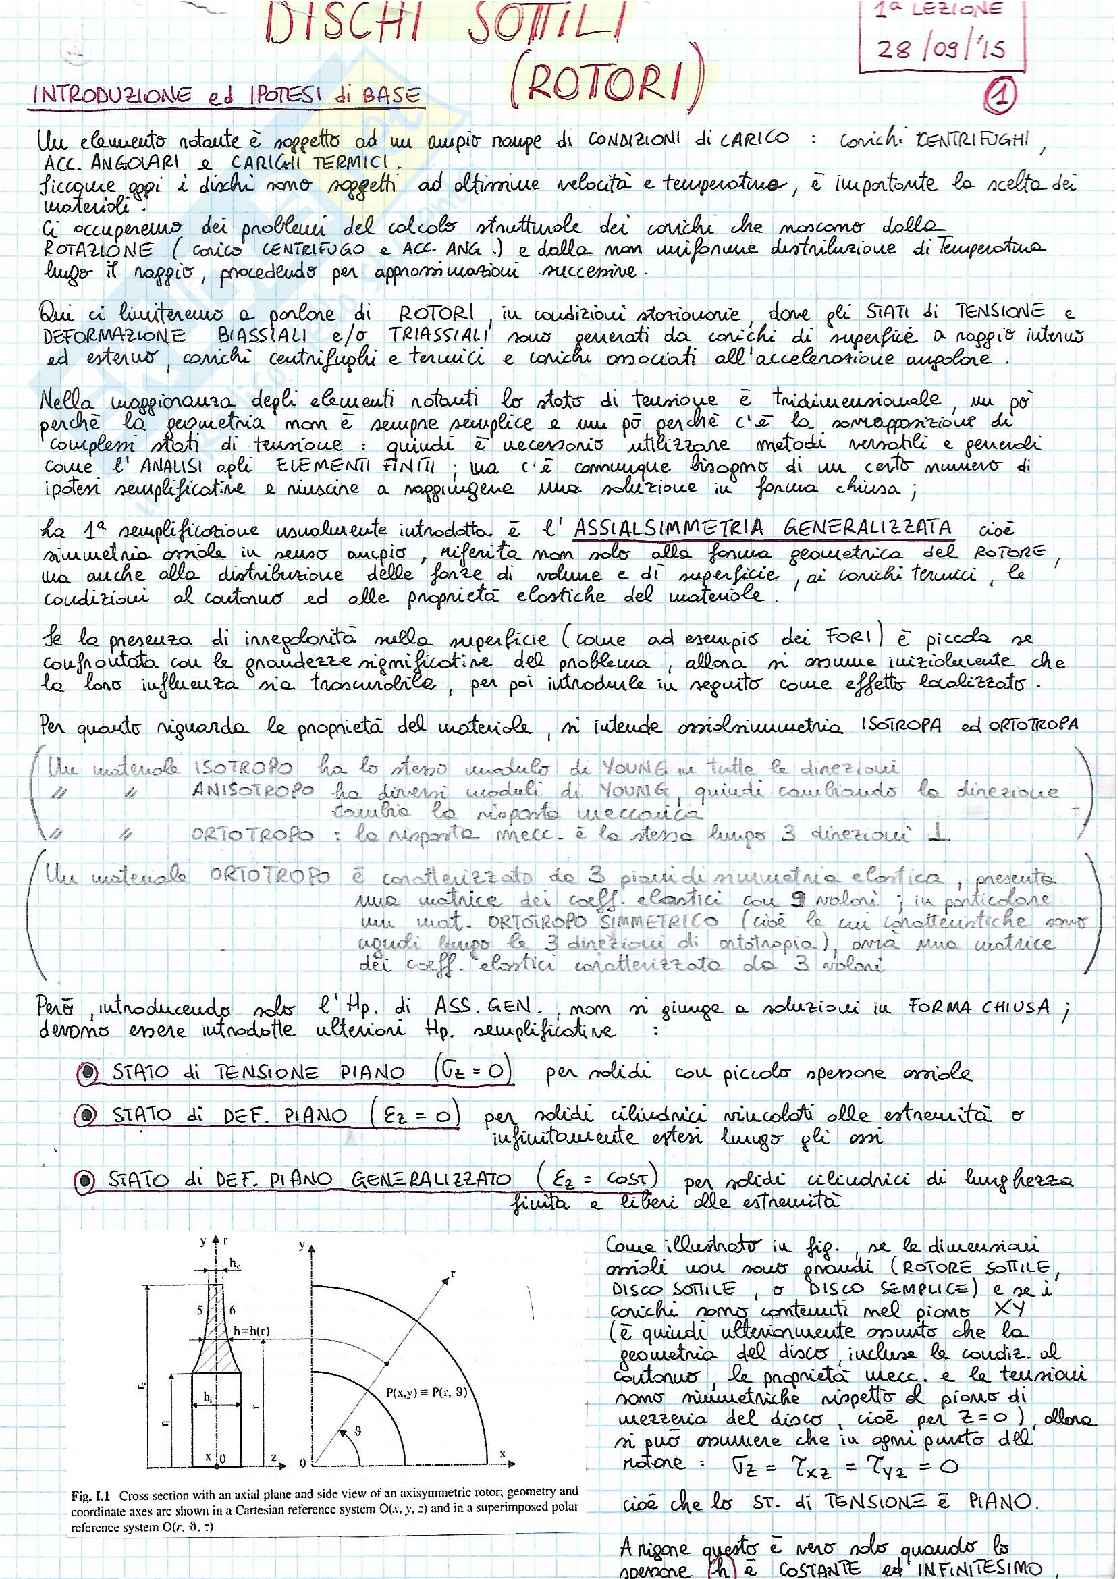 DISCHI SOTTILI
(ROTORI)
1ª LEZIONE
28/09/'15
1
INTRODUZIONE ed IPOTESI di BASE
Un elemento rotante è soggetto ad un ampio range di CONDIZIONI di CARICO : carichi CENTRIFUGHI,
ACC. ANGOLARI e CARICHI TERMICI.
Siccome oggi i dischi sono soggetti ad altissime velocità e temperature, è importante la scelta dei
materiali.
Ci occuperemo dei problemi del calcolo strutturale dei carichi che nascono dalla
ROTAZIONE (carico CENTRIFUGO e ACC. ANG.) e dalla non uniforme distribuzione di Temperatura
lungo il raggio, procedendo per approssimazioni successive.
Qui ci limiteremo a parlare di ROTORI, in condizioni stazionarie, dove gli STATI di TENSIONE e
DEFORMAZIONE BIASSIALI e/o TRIASSIALI sono generati da carichi di superficie a raggio interno
ed esterno, carichi centrifughi e termici e carichi associati all'accelerazione angolare.
Nella maggioranza degli elementi rotanti lo stato di tensione è tridimensionale, un pò
perchè la geometria non è sempre semplice e un pò perchè c'è la sovrapposizione di
complessi stati di tensione : quindi è necessario utilizzare metodi versatili e generali
come l'ANALISI agli ELEMENTI FINITI ; ma c'è comunque bisogno di un certo numero di
ipotesi semplificative e riuscire a raggiungere una soluzione in forma chiusa ;
La 1ª semplificazione usualmente introdotta è l'ASSIALSIMMETRIA GENERALIZZATA cioè
simmetria assiale in senso ampio, riferita non solo alla forma geometrica del ROTORE,
ma anche alla distribuzione delle forze di volume e di superficie, ai carichi termici, le
condizioni al contorno ed alle proprietà elastiche del materiale.
Se la presenza di irregolarità nella superficie (come ad esempio dei FORI) è piccola se
confrontata con le grandezze significative del problema, allora si assume inizialmente che
la loro influenza sia trascurabile, per poi introdurle in seguito come effetto localizzato.
Per quanto riguarda le proprietà del materiale, si intende assialsimmetria ISOTROPA ed ORTOTROPA
(Un materiale ISOTROPO ha lo stesso modulo di YOUNG in tutte le direzioni
" " ANISOTROPO ha diversi moduli di YOUNG, quindi cambiando la direzione
cambia la risposta meccanica
" " ORTOTROPO : la risposta mecc. è la stessa lungo 3 direzioni ⊥)
(Un materiale ORTOTROPO è caratterizzato da 3 piani di simmetria elastica, presenta
una matrice dei coeff. elastici con 9 valori ; in particolare
un mat. ORTOTROPO SIMMETRICO (cioè le cui caratteristiche sono
uguali lungo le 3 direzioni di ortotropia), avrà una matrice
dei coeff. elastici caratterizzata da 3 valori)
Però, introducendo solo l'Hp. di ASS. GEN., non si giunge a soluzioni in FORMA CHIUSA ;
devono essere introdotte ulteriori Hp. semplificative :
STATO di TENSIONE PIANO (σz = 0) per solidi con piccolo spessore assiale
STATO di DEF. PIANO (εz = 0) per solidi cilindrici vincolati alle estremità o
infinitamente estesi lungo gli assi
STATO di DEF. PIANO GENERALIZZATO (εz = COST) per solidi cilindrici di lunghezza
finita e liberi alle estremità
y r
5 6
h=h(r)
x 0 z
y
r
P(x,y) ≡ P(r, ϑ)
ϑ
0 x
Fig. I.1 Cross section with an axial plane and side view of an axisymmetric rotor; geometry and
coordinate axes are shown in a Cartesian reference system O(x, y, z) and in a superimposed polar
reference system O(r, ϑ, z)
Come illustrato in fig., se le dimensioni
assiali non sono grandi (ROTORE SOTTILE,
DISCO SOTTILE, o DISCO SEMPLICE) e se i
carichi sono contenuti nel piano XY
(è quindi ulteriormente assunto che la
geometria del disco, incluse le condiz. al
contorno, le proprietà mecc. e le tensioni
sono simmetriche rispetto al piano di
mezzeria del disco, cioè per z=0), allora
si può assumere che in ogni punto del
rotore : σz = τxz = τyz = 0
cioè che lo ST. di TENSIONE è PIANO.
A rigore questo è vero solo quando lo
spessore (h) è COSTANTE ed INFINITESIMO,